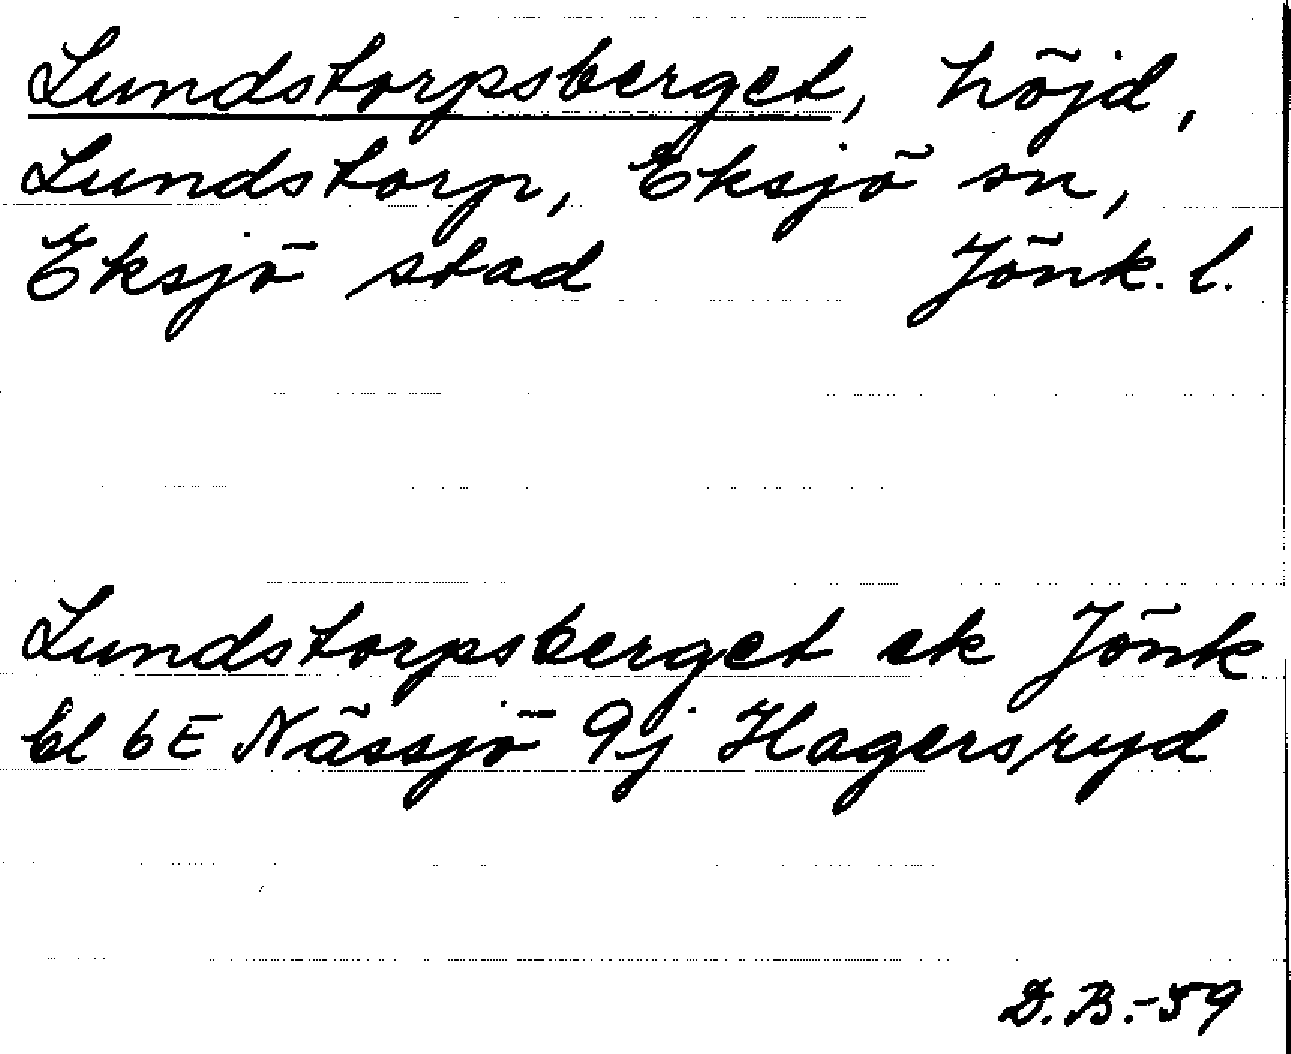 Lundstorpsberget, höjd,
Lundstorp, Eksjö sn,
Eksjö stad Jönk. l.
Lundstorpsberget ek Jönk
bl 6E Nässjö 9j Hagersryd
D.B.-59